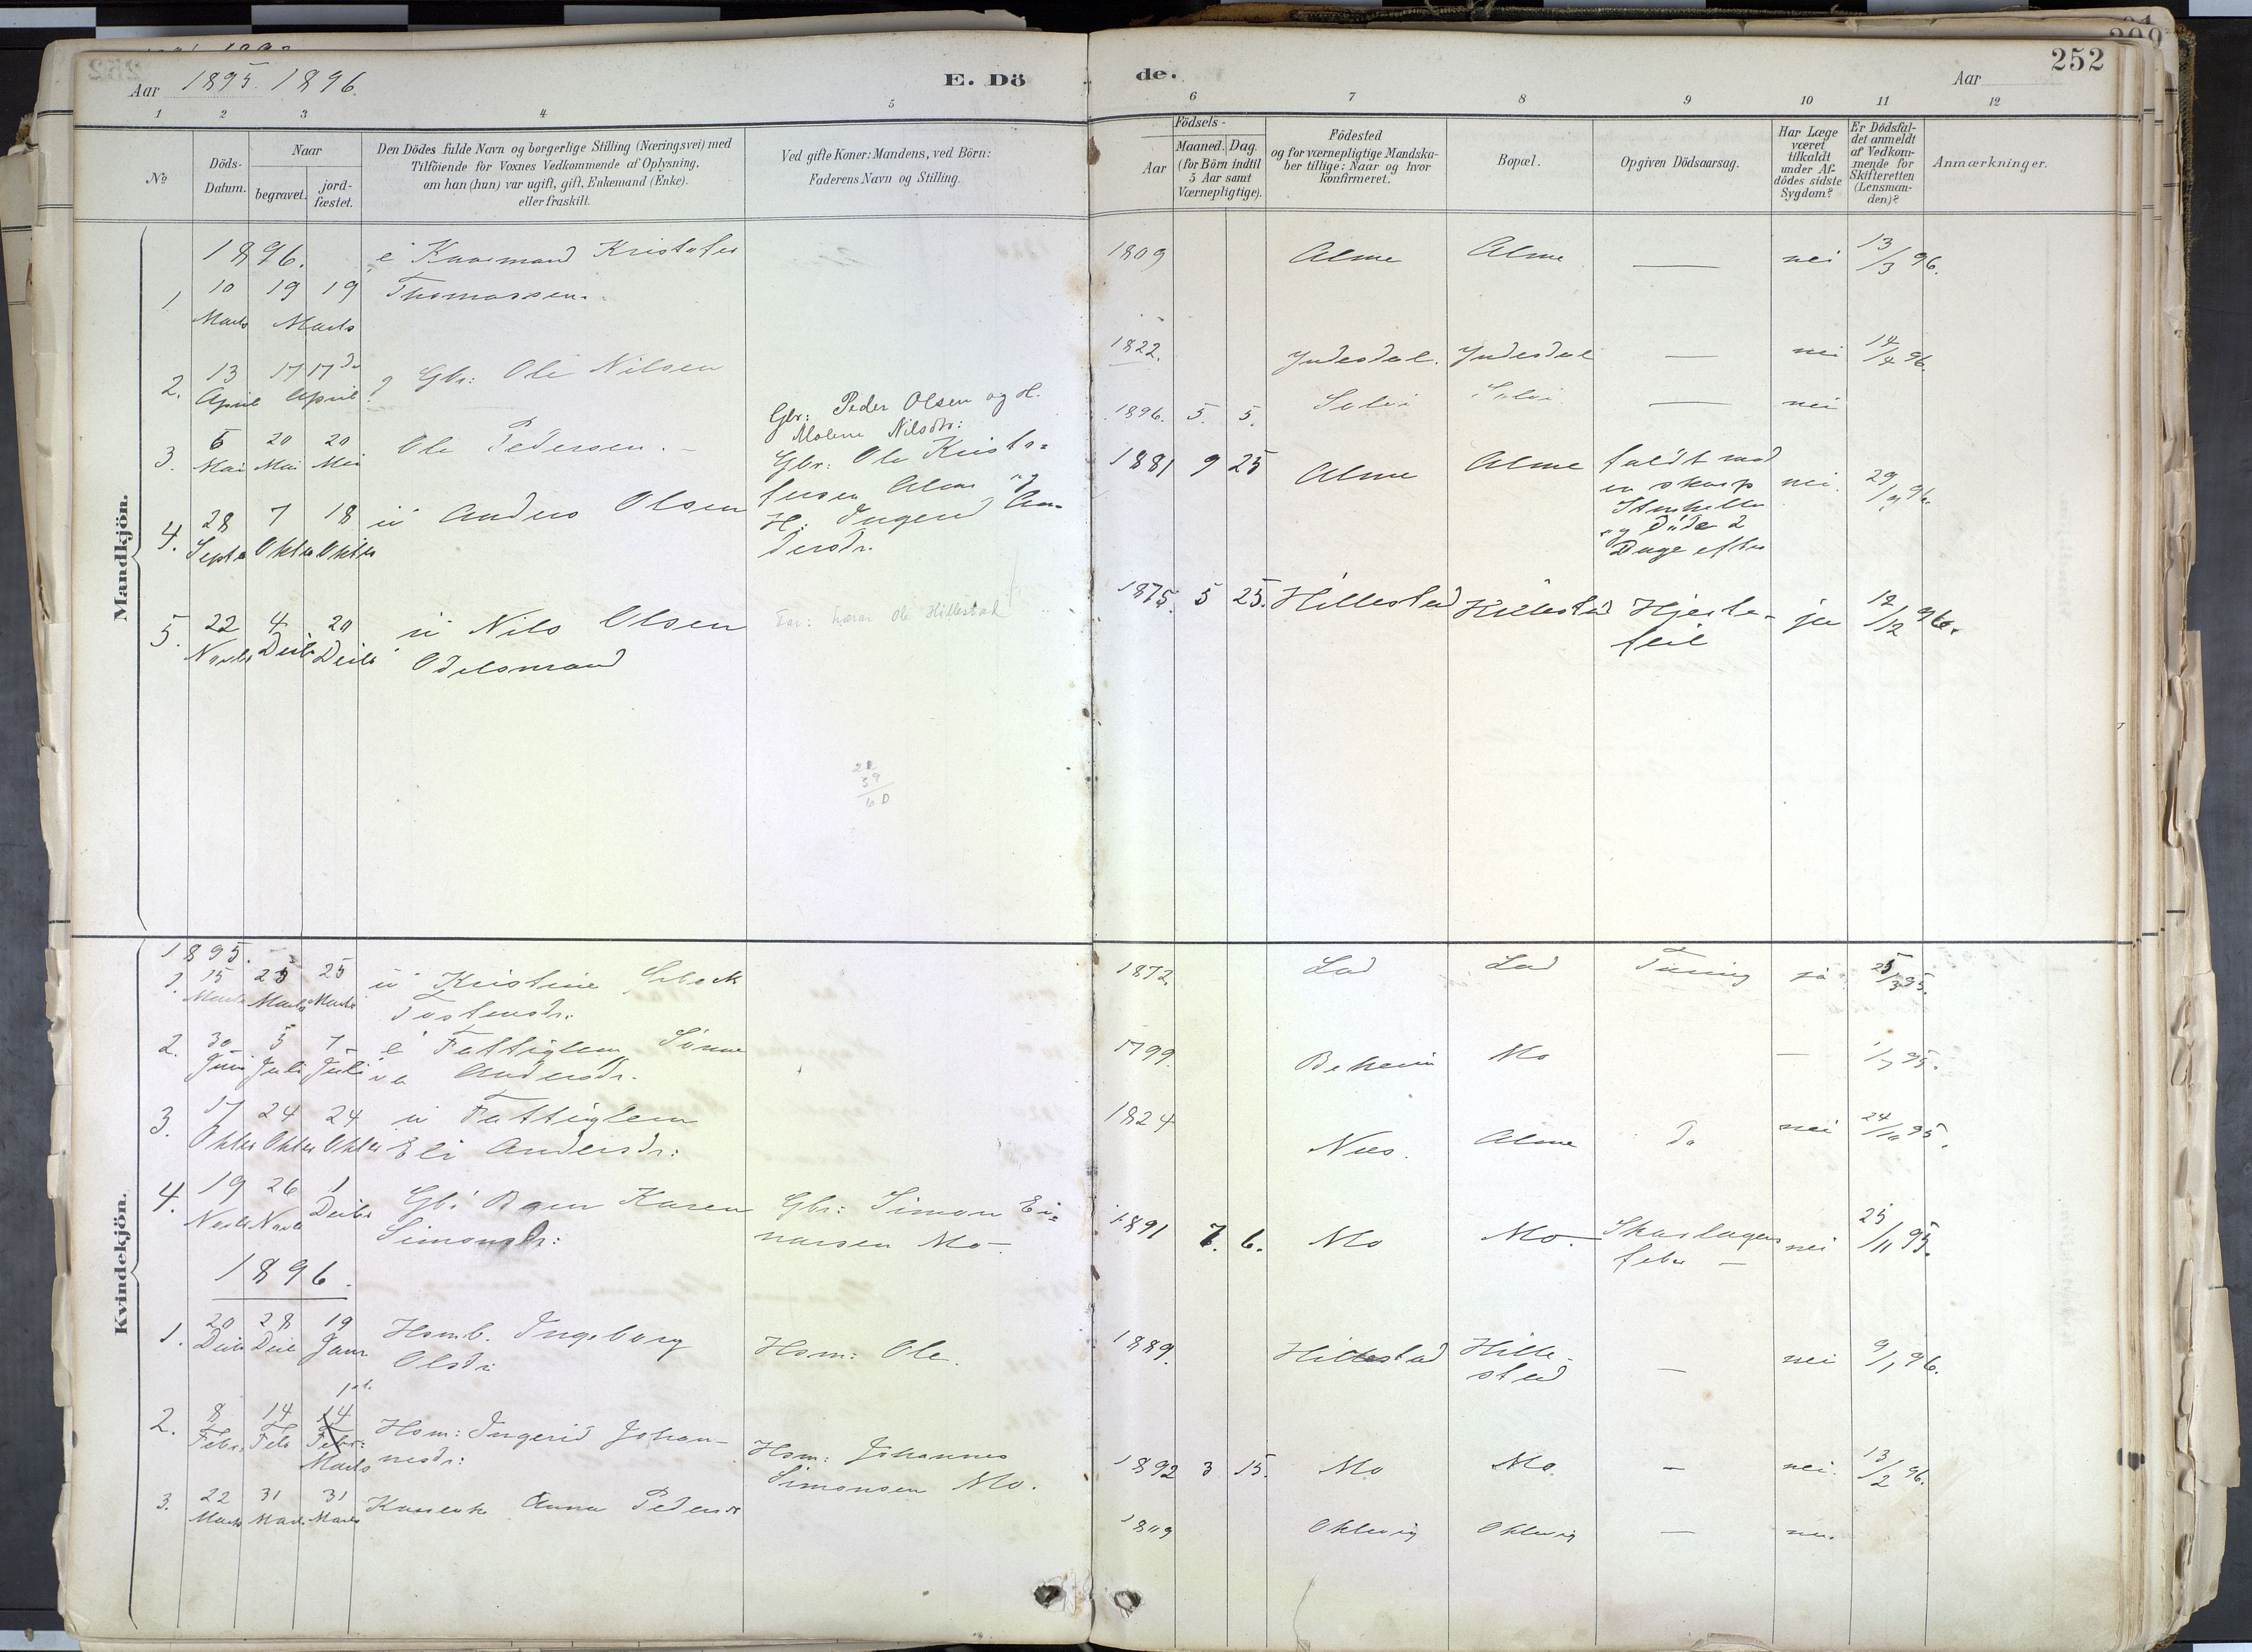 Aar 1895. 1896.
E. Dö
de.
Aar
252
1 2 3 4 5 6 7 8 9 10 11 12
No
Döds-
Datum.
Naar
begravet.
jord-
fæstet.
Den Dödes fulde Navn og borgerlige Stilling (Næringsvei) med
Tilföiende for Voxnes Vedkommende af Oplysning,
om han (hun) var ugift, gift, Enkemand (Enke).
eller fraskilt.
Ved gifte Koner: Mandens, ved Börn:
Faderens Navn og Stilling.
Födsels-
Aar
Maaned. Dag.
(for Börn indtil
5 Aar samt
Værnepligtige).
Födested
og for værnepligtige Mandska-
ber tillige: Naar og hvor
konfirmeret.
Bopæl.
Opgiven Dödsaarsag.
Har Læge
været
tilkaldt
under Af-
dödes sidste
Sygdom?
Er Dödsfal-
det anmeldt
af Vedkom-
mende for
Skifteretten
(Lensman-
den)?
Anmærkninger.
Mandkjön.
1896.
1 10 Marts 19 19 Marts e Kaarmand Kristofer
Thomassen.
1809 Alme Alme — nei 13/3 96.
2. 13 April 17 17 de April g Gbr: Ole Nilsen
1822. Indesdal. Indesdal — nei 14/4 96.
3. 6 Mai 20 Mai 20 Mai Ole Pedersen. —
Gbr: Peder Olsen og H.
Malene Nilsdtr:
1896. 5. 5. — nei
4. 28 Septr 7 Oktbr 18 Oktbr ú Anders Olsen
Gbr: Ole Kristo=
fersen Alme og
H: Ingerid An-
dersdr.
1881 9 25 Alme Alme faldt mod
en skarp
Stenhelle
og döde 2
Dage efter
nei. 29/9 96.
5. 22 Novbr 4 Decbr 20 Decbr ú Nils Olsen
Odelsmand
Far: Ole Hillestad
1875. 5 25. Hillestad Hillestad Hjerte-
feil
ja 12/12 96.
Kvindekjön.
1895.
1. 15 Marts 25 Marts 25 Marts ú Kristine
Tostensdr.
1872. Lad Lad Tæring ja 25/3 95.
2. 30 Juni 5 Juli 7 Juli e Fattiglem Sönne
va Andersdr.
1799. Mo — 1/7 95.
3. 17 Oktbr 24 Oktbr 24 Oktbr ú Fattiglem
Eli Andersdr:
1824 Nees. Alme do nei 24/10 95.
4. 19 Novbr 26 Novbr 1 Decbr Gb: Barn Karen
Simonsdr:
Gbr: Simon Ei=
narsen Mo.
1891 7. 6. Mo Mo. Skarlagens
feber —
nei 25/11 95.
1896.
1. 20 Decbr 28 Decbr 19 Janr Hsmb. Ingeborg
Olsdr:
Hsm: Ole.
1889. Hillestad Hille-
stad
— nei 9/1 96.
2. 8 Febr. 14 Feb 14 Febr: 1st.
Marts
Hsm: Ingerid Johan-
nesdr:
Hsm: Johannes
Simonsen Mo.
1892 3 15. Mo Mo. — nei. 13/2 96.
3. 22 Marts 31 Marts 31 Marts Anna Pedersdr
1809 —